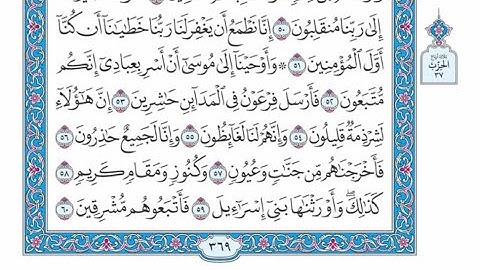 إِلَىٰ رَبِّنَا مُنقَلِبُونَ ٥٠ إِنَّا نَطْمَعُ أَن يَغْفِرَ لَنَا رَبُّنَا خَطَٰيَٰنَآ أَن كُنَّآ
أَوَّلَ ٱلْمُؤْمِنِينَ ٥١ ۞ وَأَوْحَيْنَآ إِلَىٰ مُوسَىٰٓ أَنْ أَسْرِ بِعِبَادِىٓ إِنَّكُم
مُّتَّبَعُونَ ٥٢ فَأَرْسَلَ فِرْعَوْنُ فِى ٱلْمَدَآئِنِ حَٰشِرِينَ ٥٣ إِنَّ هَٰٓؤُلَآءِ
لَشِرْذِمَةٌ قَلِيلُونَ ٥٤ وَإِنَّهُمْ لَنَا لَغَآئِظُونَ ٥٥ وَإِنَّا لَجَمِيعٌ حَٰذِرُونَ ٥٦
فَأَخْرَجْنَٰهُم مِّن جَنَّٰتٍ وَعُيُونٍ ٥٧ وَكُنُوزٍ وَمَقَامٍ كَرِيمٍ ٥٨
كَذَٰلِكَۖ وَأَوْرَثْنَٰهَا بَنِىٓ إِسْرَٰٓءِيلَ ٥٩ فَأَتْبَعُوهُم مُّشْرِقِينَ ٦٠
٣٦٩
الحزب
٣٧